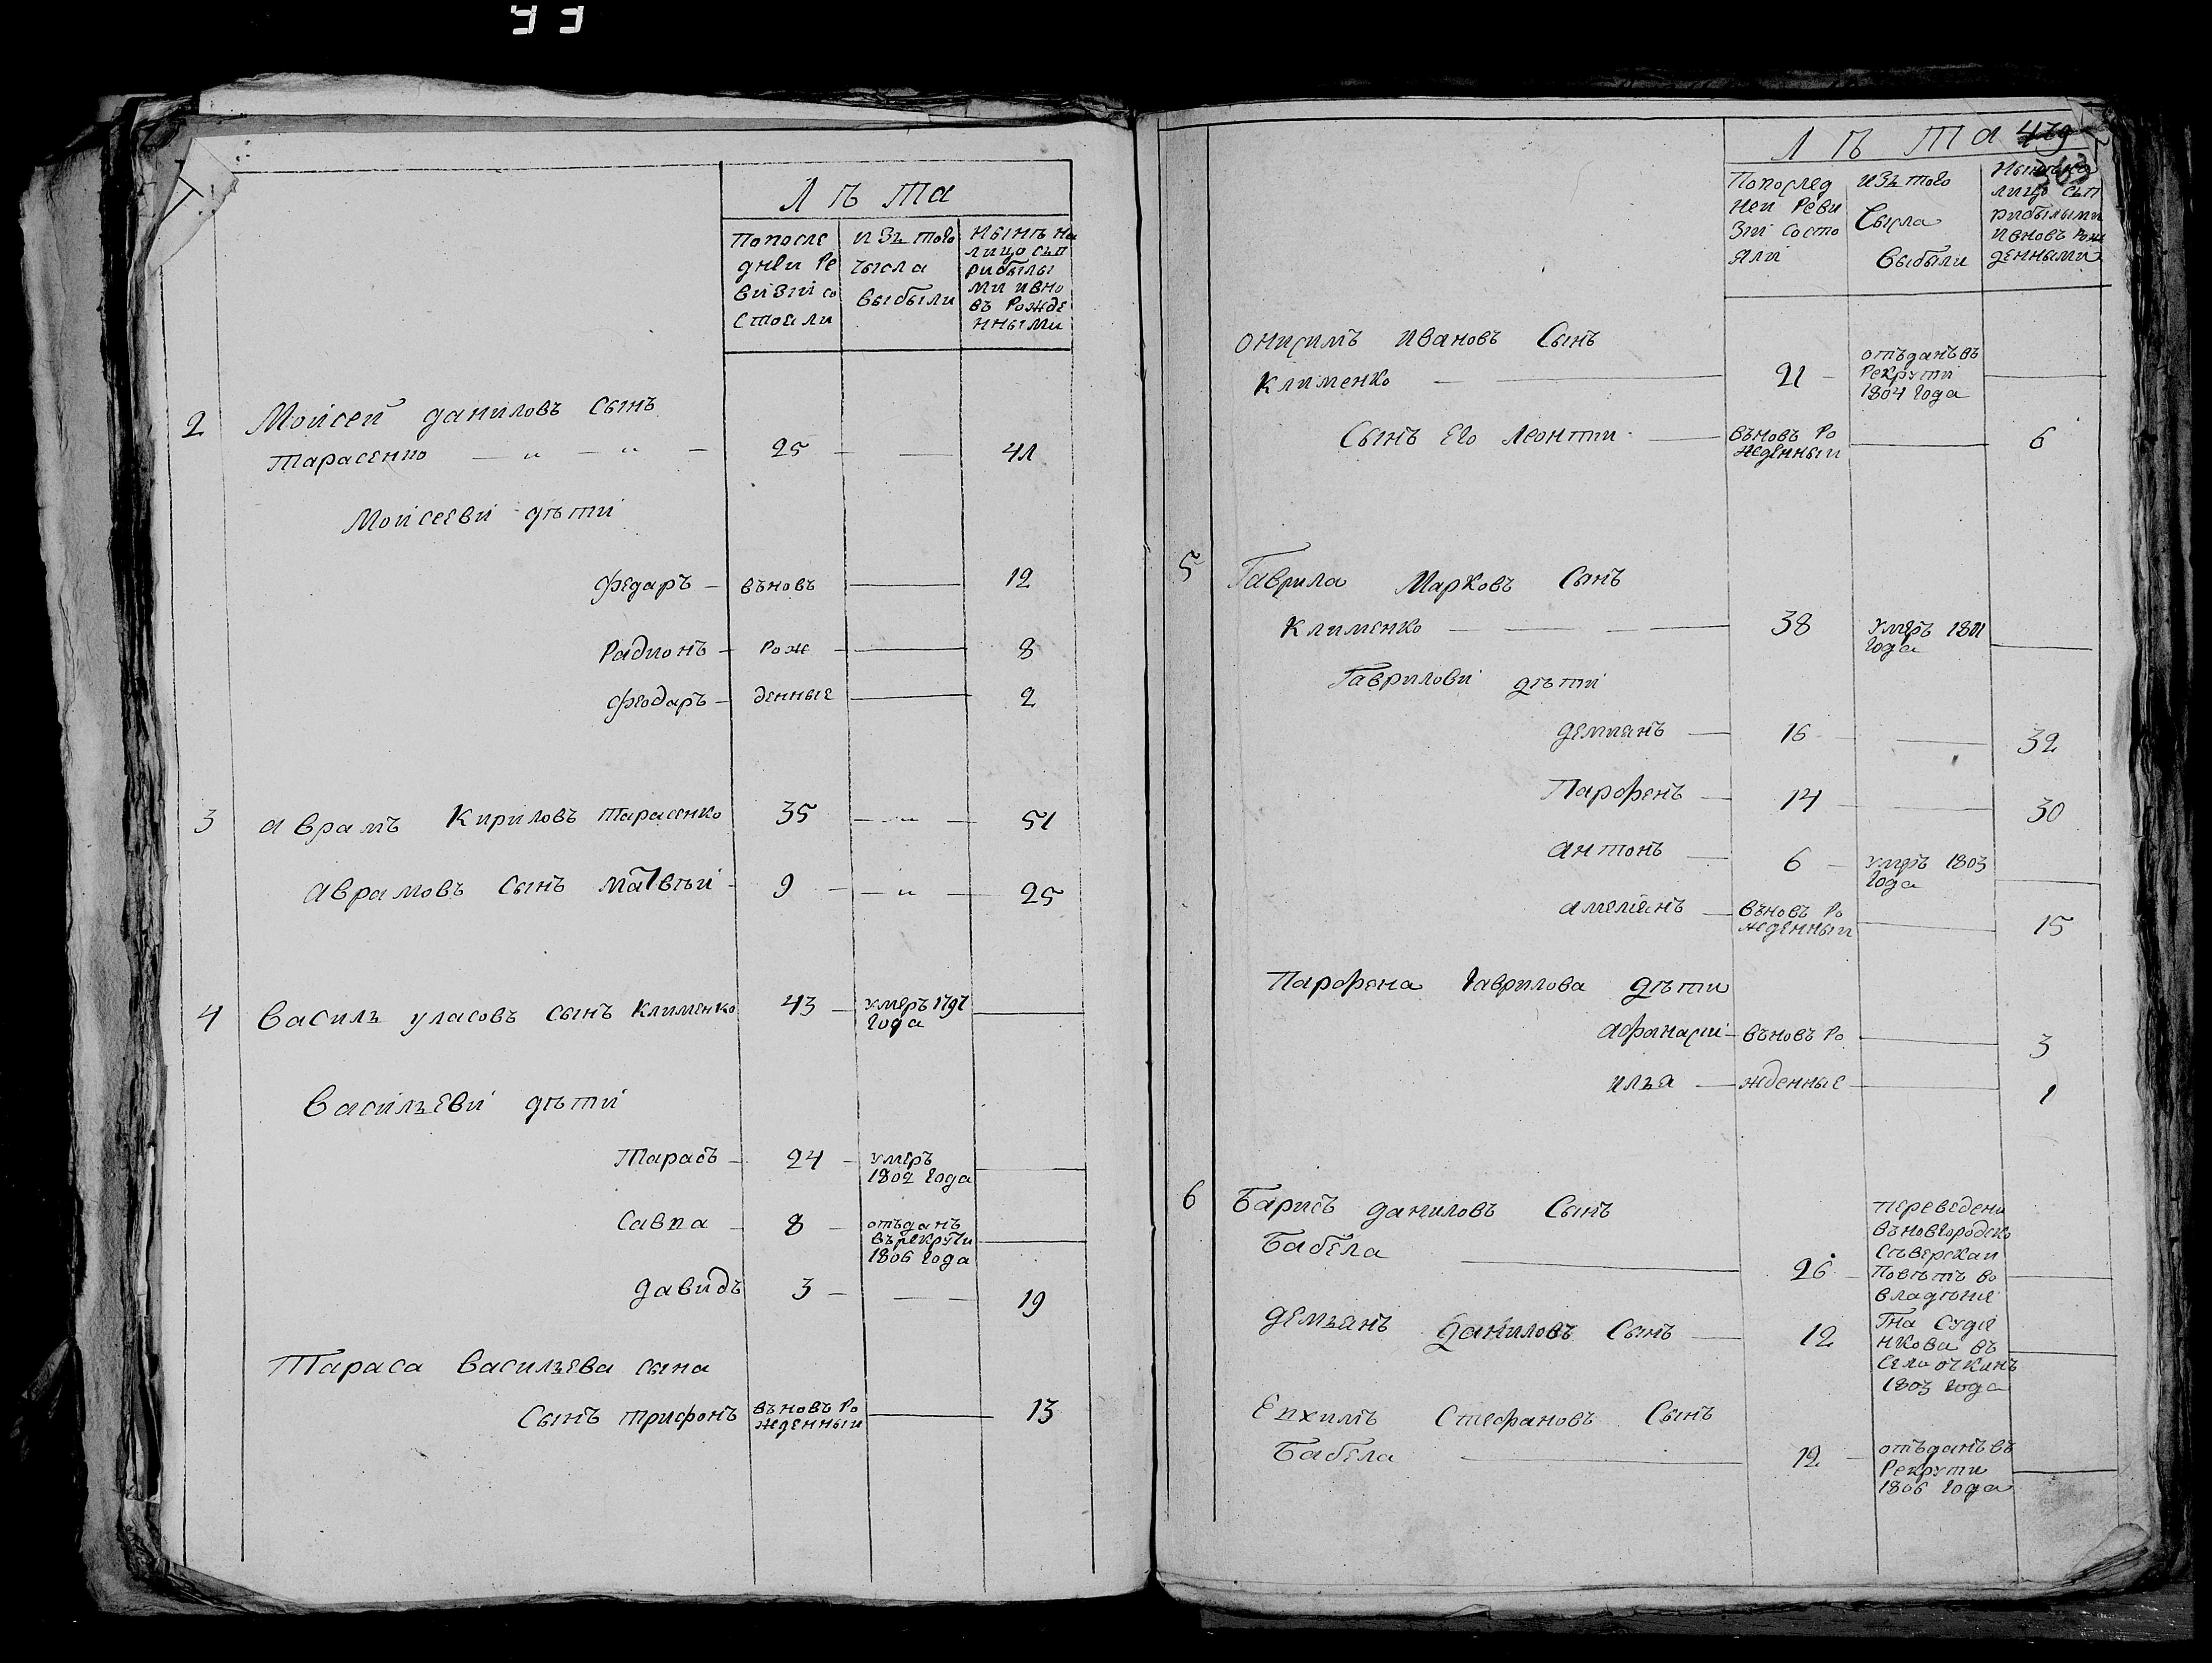 Лѣта
Попосле изъ того нынѣ на
дней Ре числа лицо съп
визіи со выбыли рибылы
стояли ми ивно
въ Рожде
нными
2 Моисей даниловъ сынъ
Тарасенко 25 41
Моісееви дѣти
Федаръ въновь 12
Радионъ Рож 8
Феодаръ денные 2
3 аврамъ Кириловъ Тарасенко 35 51
аврамовъ сынъ матвѣи 9 25
4 василь уласовъ сынъ Клименко 43 умеръ 1797
года
васильеви дѣти
Тарасъ 24 умеръ
1802 года
Савка 8 отъданъ
врекрути
1806 года
давидъ 3 19
Тараса васильева сына
Сынъ трифонъ въновь Ро 13
жденныи
Лѣта 479
Попослед изъ того Нынѣ на
неи Реви Числа лицо съп
зіи состо выбыли рибылыми
яли ивновь Рож
денными
онисимъ ивановъ Сынъ
Клименко 21 отъданъ въ
Рекрути
1804 года
Сынъ его леонтии въновь Ро 6
жденныи
5 Гаврила Марковъ Сынъ
Клименко 38 умеръ 1801
года
Гаврилови дѣти
демиянъ 16 32
Парфенъ 14 30
антонъ 6 умеръ 1803
года
амелиянъ въновь Ро 15
жденныи
Парфена гаврилова дѣти
афанасии въновь Ро 3
илья жденные 1
6 Барисъ даниловъ Сынъ
Бабела 26
переведени
въновгородско
Сѣверскаи
Повѣтъ во
владѣние
Гна Судие
нкова въ
село очкинъ
1803 года
демьянъ даниловъ Сынъ 12
Епхимъ Стефановъ Сынъ
Бабела 12 отъданъ въ
Рекрути
1806 года